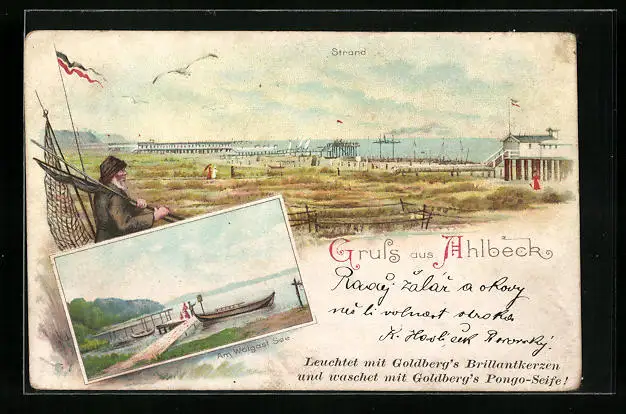 Strand
Gruſs aus Ahlbeck
Raděj žalář a okovy
než li volnost otroka
K. Havlíček Borovský.
Am Wolgast See
Leuchtet mit Goldberg's Brillantkerzen
und waschet mit Goldberg's Pongo-Seife!